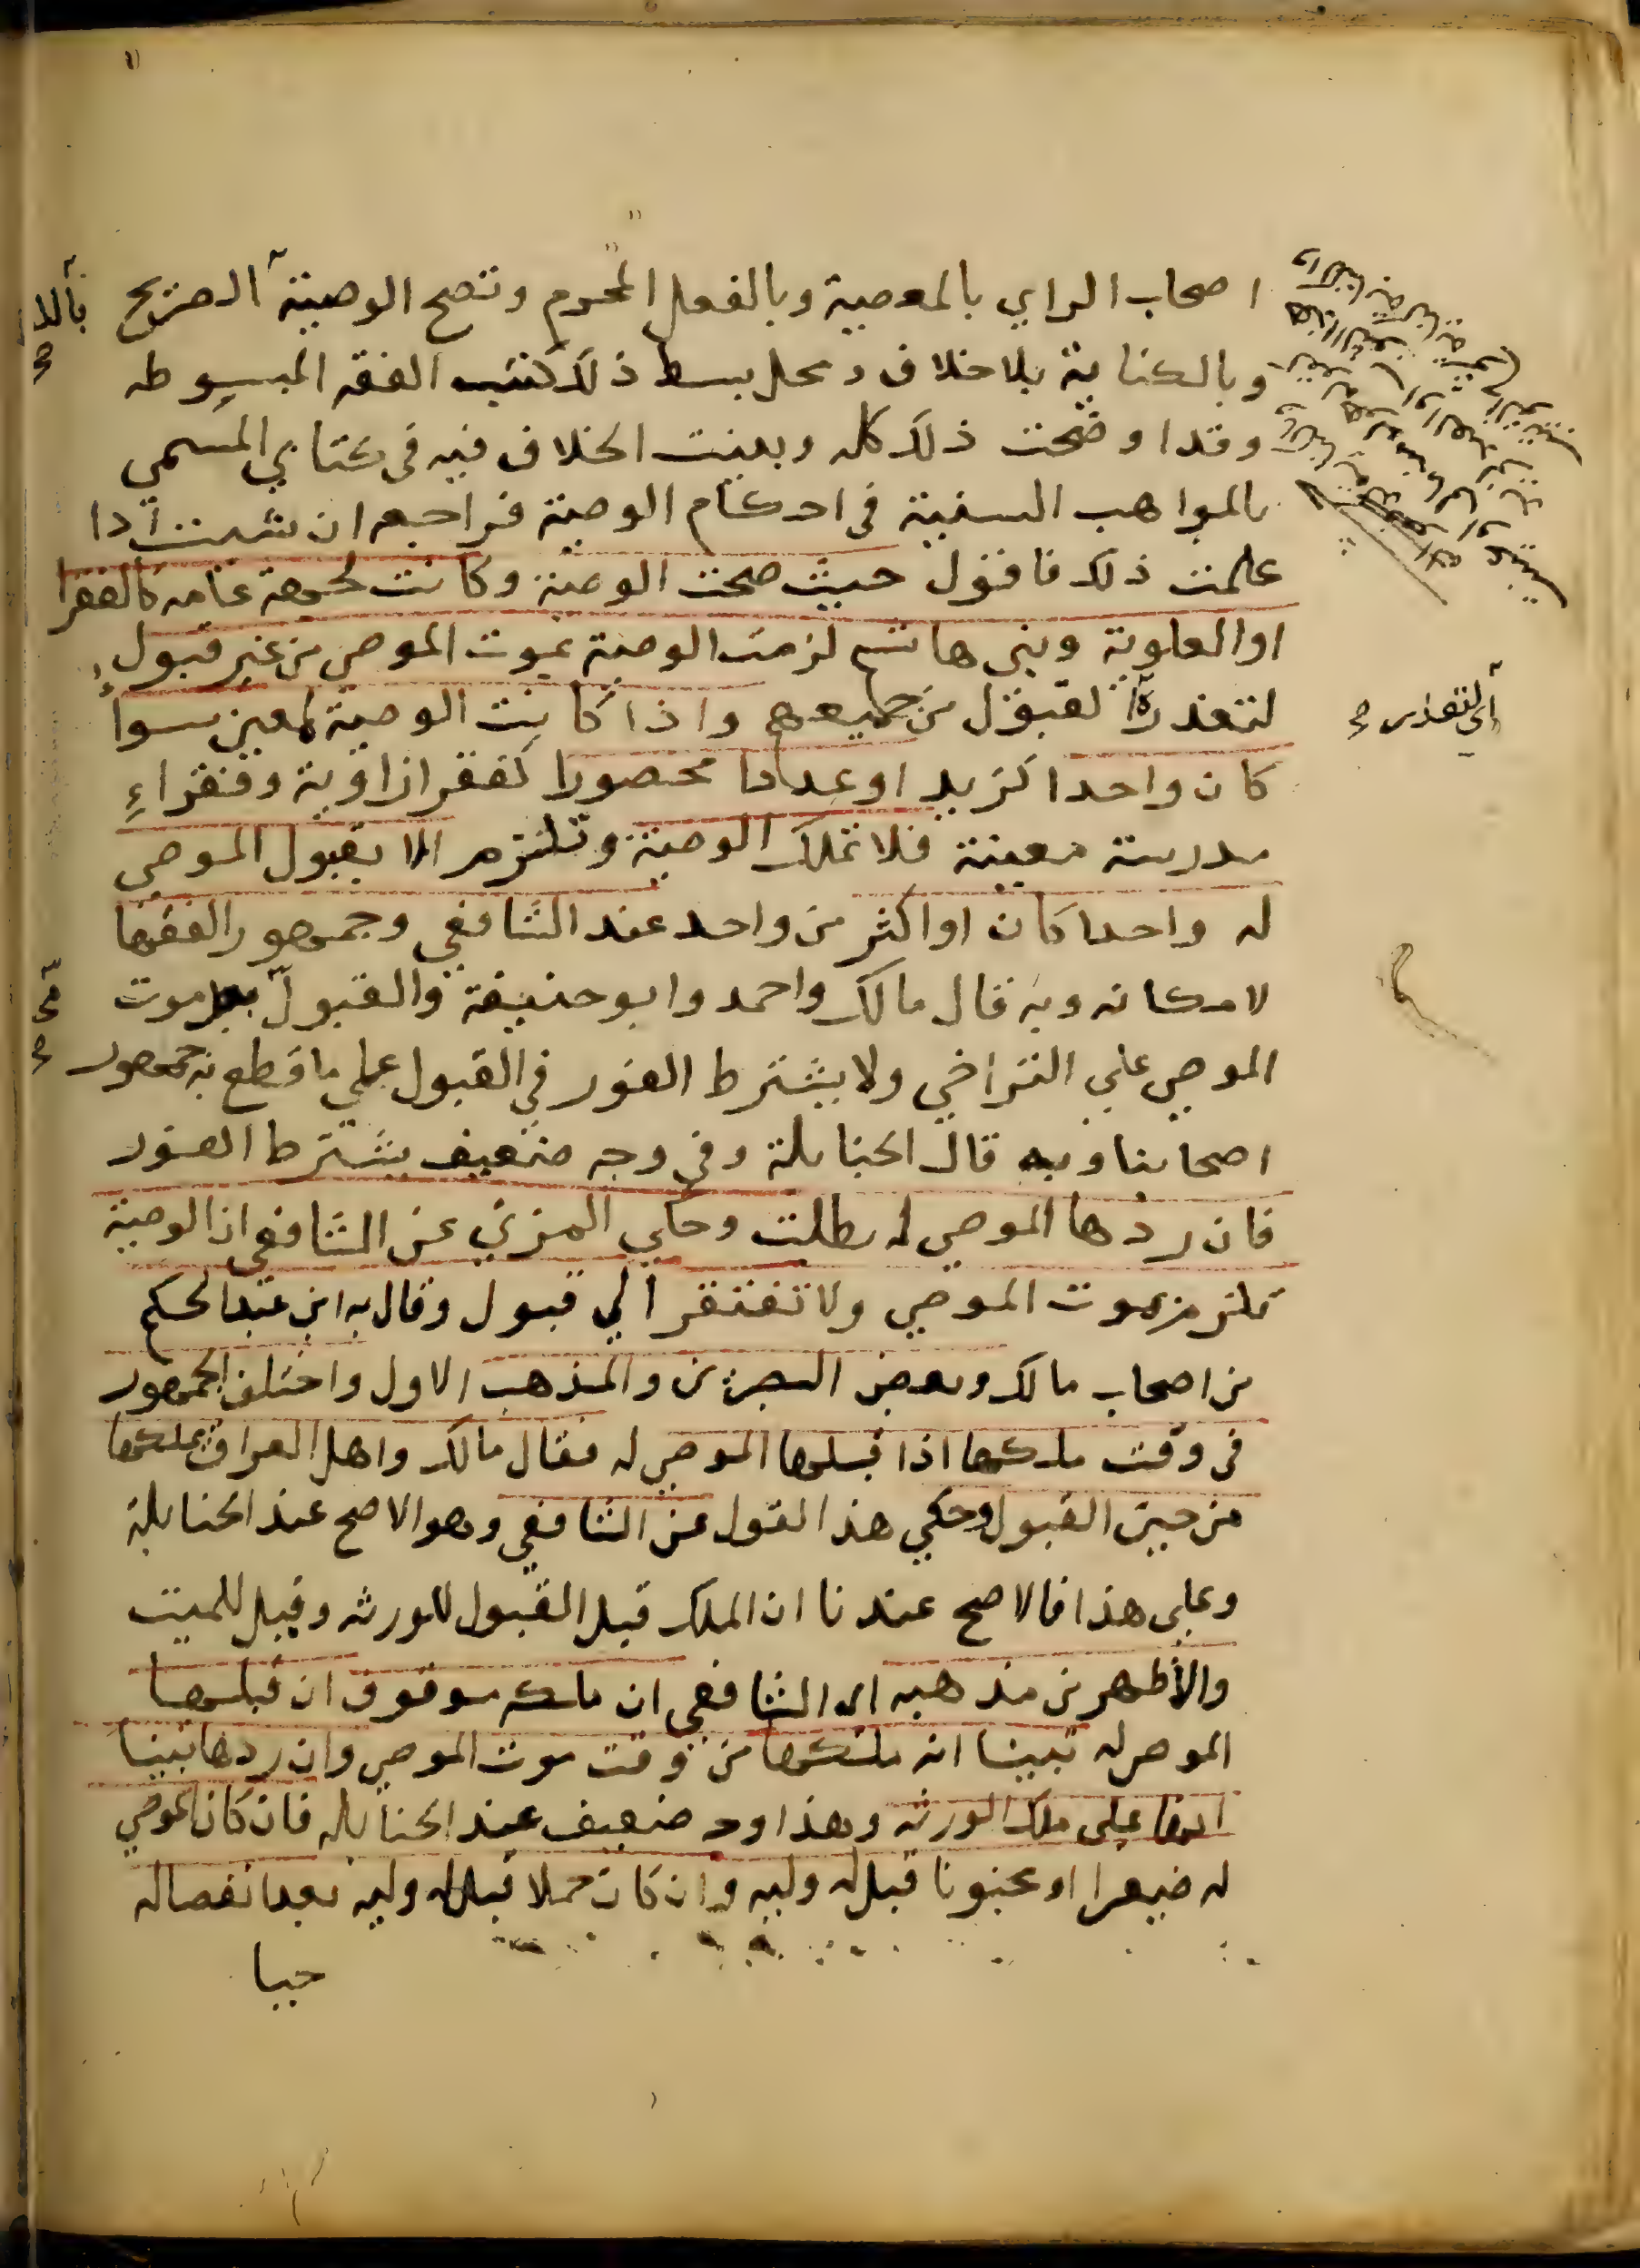 اصحاب الراي بالمعصية وبالفعل المحرم وتصح الوصية الصريح
وبالكناية بلا خلاف ومحل بسط ذلك كتب الفقه المبسوطه
وقد اوضحت ذلك كله وبينت الخلاف فيه في كتابي المسمي
بالمواهب السنية في احكام الوصية فراجعه ان شيت اذا
علمت ذلك فاقول حيث صحت الوصية وكانت لجهة عامه كالفقرا
او العلوية وبني هاشم لزمت الوصية بموت الموصي من غير قبول
لتعذر القبول من جميعهم واذا كانت الوصية لمعين سواً
كان واحدا كزيد او عددا محصورا كفقرا زاوية وفقراءِ
مدرسة معينة فلا تملك الوصية وتلزم الا بقبول الموصي
له واحدا كان او اكثر من واحد عند الشافعي وجمهور الفقها
لامكانه وبه قال مالك واحمد وابو حنيفة والقبول بعد موت
الموصي علي التراخي ولا يشترط الفور في القبول علي ما قطع به جمهور
اصحابنا وبه قال الحنابلة وفي وجه ضعيف يشترط الفور
فان ردها الموصي له بطلت وحكي المزني عن الشافعي ان الوصية
تلزم بموت الموصي ولا تفتقر الي قبول وقال به ابن عبد الحكم
من اصحاب مالك وبعض البصريين والمذهب الاول واختلف الجمهور
في وقت ملكها اذا قبلها الموصي له فقال مالك واهل العراق يملكها
من حين القبول وحكي هذا القول عن الشافعي وهو الاصح عند الحنابلة
وعلي هذا فالاصح عندنا ان الملك قبل القبول للورثه وقيل للميت
والاظهر من مذهبه اي الشافعي ان ملكه موقوف ان قبلها
الموصي له تبينا انه ملكها من وقت موت الموصي وان ردها تبينا
انها علي ملك الورثه وهذا وجه ضعيف عند الحنابله فان كان الموصي
له صغيرا او مجنونا قبل له وليه وان كان حملا قبل له وليه بعد انفصاله
حيا